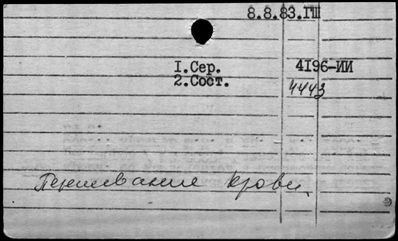 8.8.83.ГШ
1.Сер. 4196-ИИ
2.Сост. 4443
Переливание крови